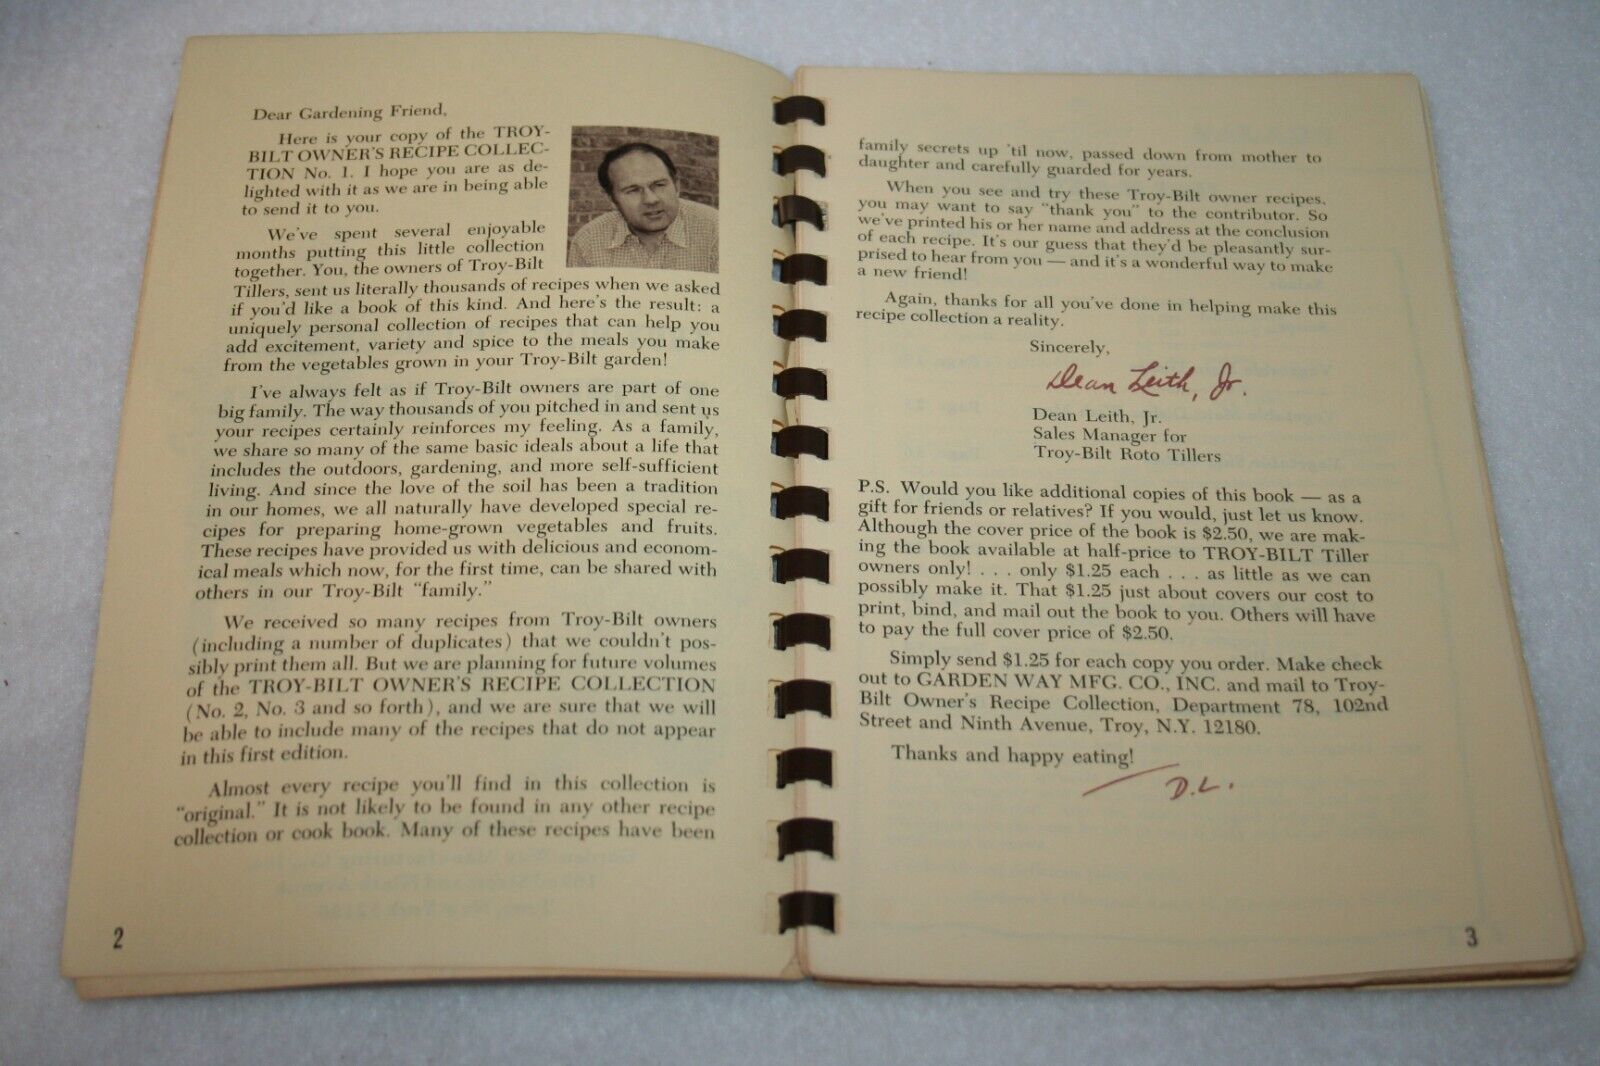 Dear Gardening Friend,
Here is your copy of the TROY-
BILT OWNER'S RECIPE COLLEC-
TION No. 1. I hope you are as de-
lighted with it as we are in being able
to send it to you.
We've spent several enjoyable
months putting this little collection
together. You, the owners of Troy-Bilt
Tillers, sent us literally thousands of recipes when we asked
if you'd like a book of this kind. And here's the result: a
uniquely personal collection of recipes that can help you
add excitement, variety and spice to the meals you make
from the vegetables grown in your Troy-Bilt garden!
I've always felt as if Troy-Bilt owners are part of one
big family. The way thousands of you pitched in and sent us
your recipes certainly reinforces my feeling. As a family,
we share so many of the same basic ideals about a life that
includes the outdoors, gardening, and more self-sufficient
living. And since the love of the soil has been a tradition
in our homes, we all naturally have developed special re-
cipes for preparing home-grown vegetables and fruits.
These recipes have provided us with delicious and econom-
ical meals which now, for the first time, can be shared with
others in our Troy-Bilt "family."
We received so many recipes from Troy-Bilt owners
(including a number of duplicates) that we couldn't pos-
sibly print them all. But we are planning for future volumes
of the TROY-BILT OWNER'S RECIPE COLLECTION
(No. 2, No. 3 and so forth), and we are sure that we will
be able to include many of the recipes that do not appear
in this first edition.
Almost every recipe you'll find in this collection is
"original." It is not likely to be found in any other recipe
collection or cook book. Many of these recipes have been
2
family secrets up 'til now, passed down from mother to
daughter and carefully guarded for years.
When you see and try these Troy-Bilt owner recipes,
you may want to say "thank you" to the contributor. So
we've printed his or her name and address at the conclusion
of each recipe. It's our guess that they'd be pleasantly sur-
prised to hear from you — and it's a wonderful way to make
a new friend!
Again, thanks for all you've done in helping make this
recipe collection a reality.
Sincerely,
Dean Leith, Jr.
Dean Leith, Jr.
Sales Manager for
Troy-Bilt Roto Tillers
P.S. Would you like additional copies of this book — as a
gift for friends or relatives? If you would, just let us know.
Although the cover price of the book is $2.50, we are mak-
ing the book available at half-price to TROY-BILT Tiller
owners only! . . . only $1.25 each . . . as little as we can
possibly make it. That $1.25 just about covers our cost to
print, bind, and mail out the book to you. Others will have
to pay the full cover price of $2.50.
Simply send $1.25 for each copy you order. Make check
out to GARDEN WAY MFG. CO., INC. and mail to Troy-
Bilt Owner's Recipe Collection, Department 78, 102nd
Street and Ninth Avenue, Troy, N.Y. 12180.
Thanks and happy eating!
D.L.
3